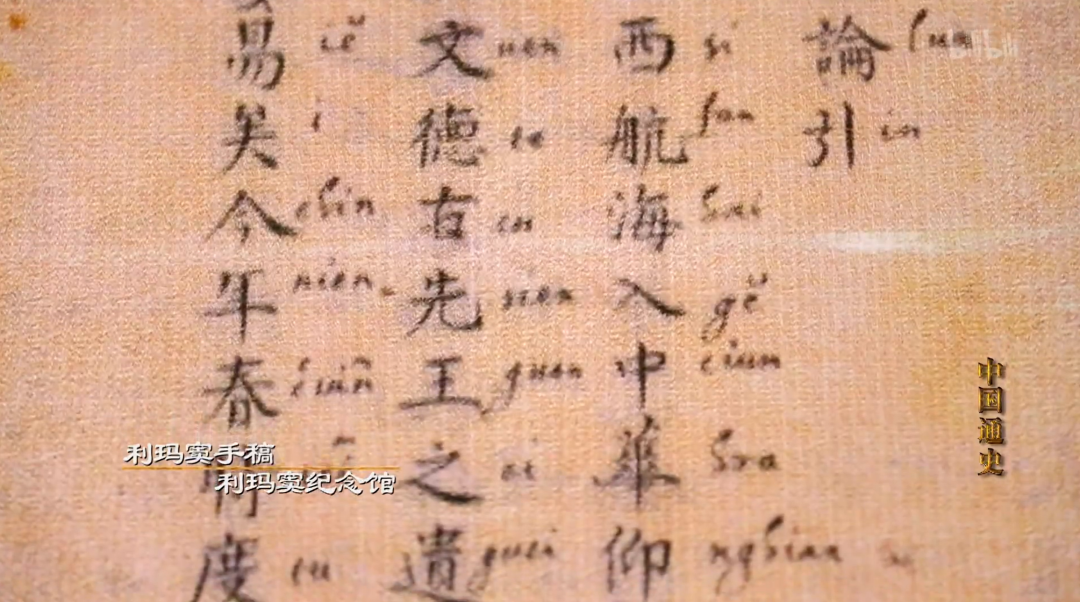 論 lun 引 in
西 si 航 han 海 hai 入 gĕ 中 cium 華 hoa 仰 nghian
文 uen 德 te 古 cu 先 sien 王 guan 之 ci 遺 guei
易 iĕ 矣 i 今 chin 年 nien 春 度 tu
中国通史
利玛窦手稿
利玛窦纪念馆
bilibili